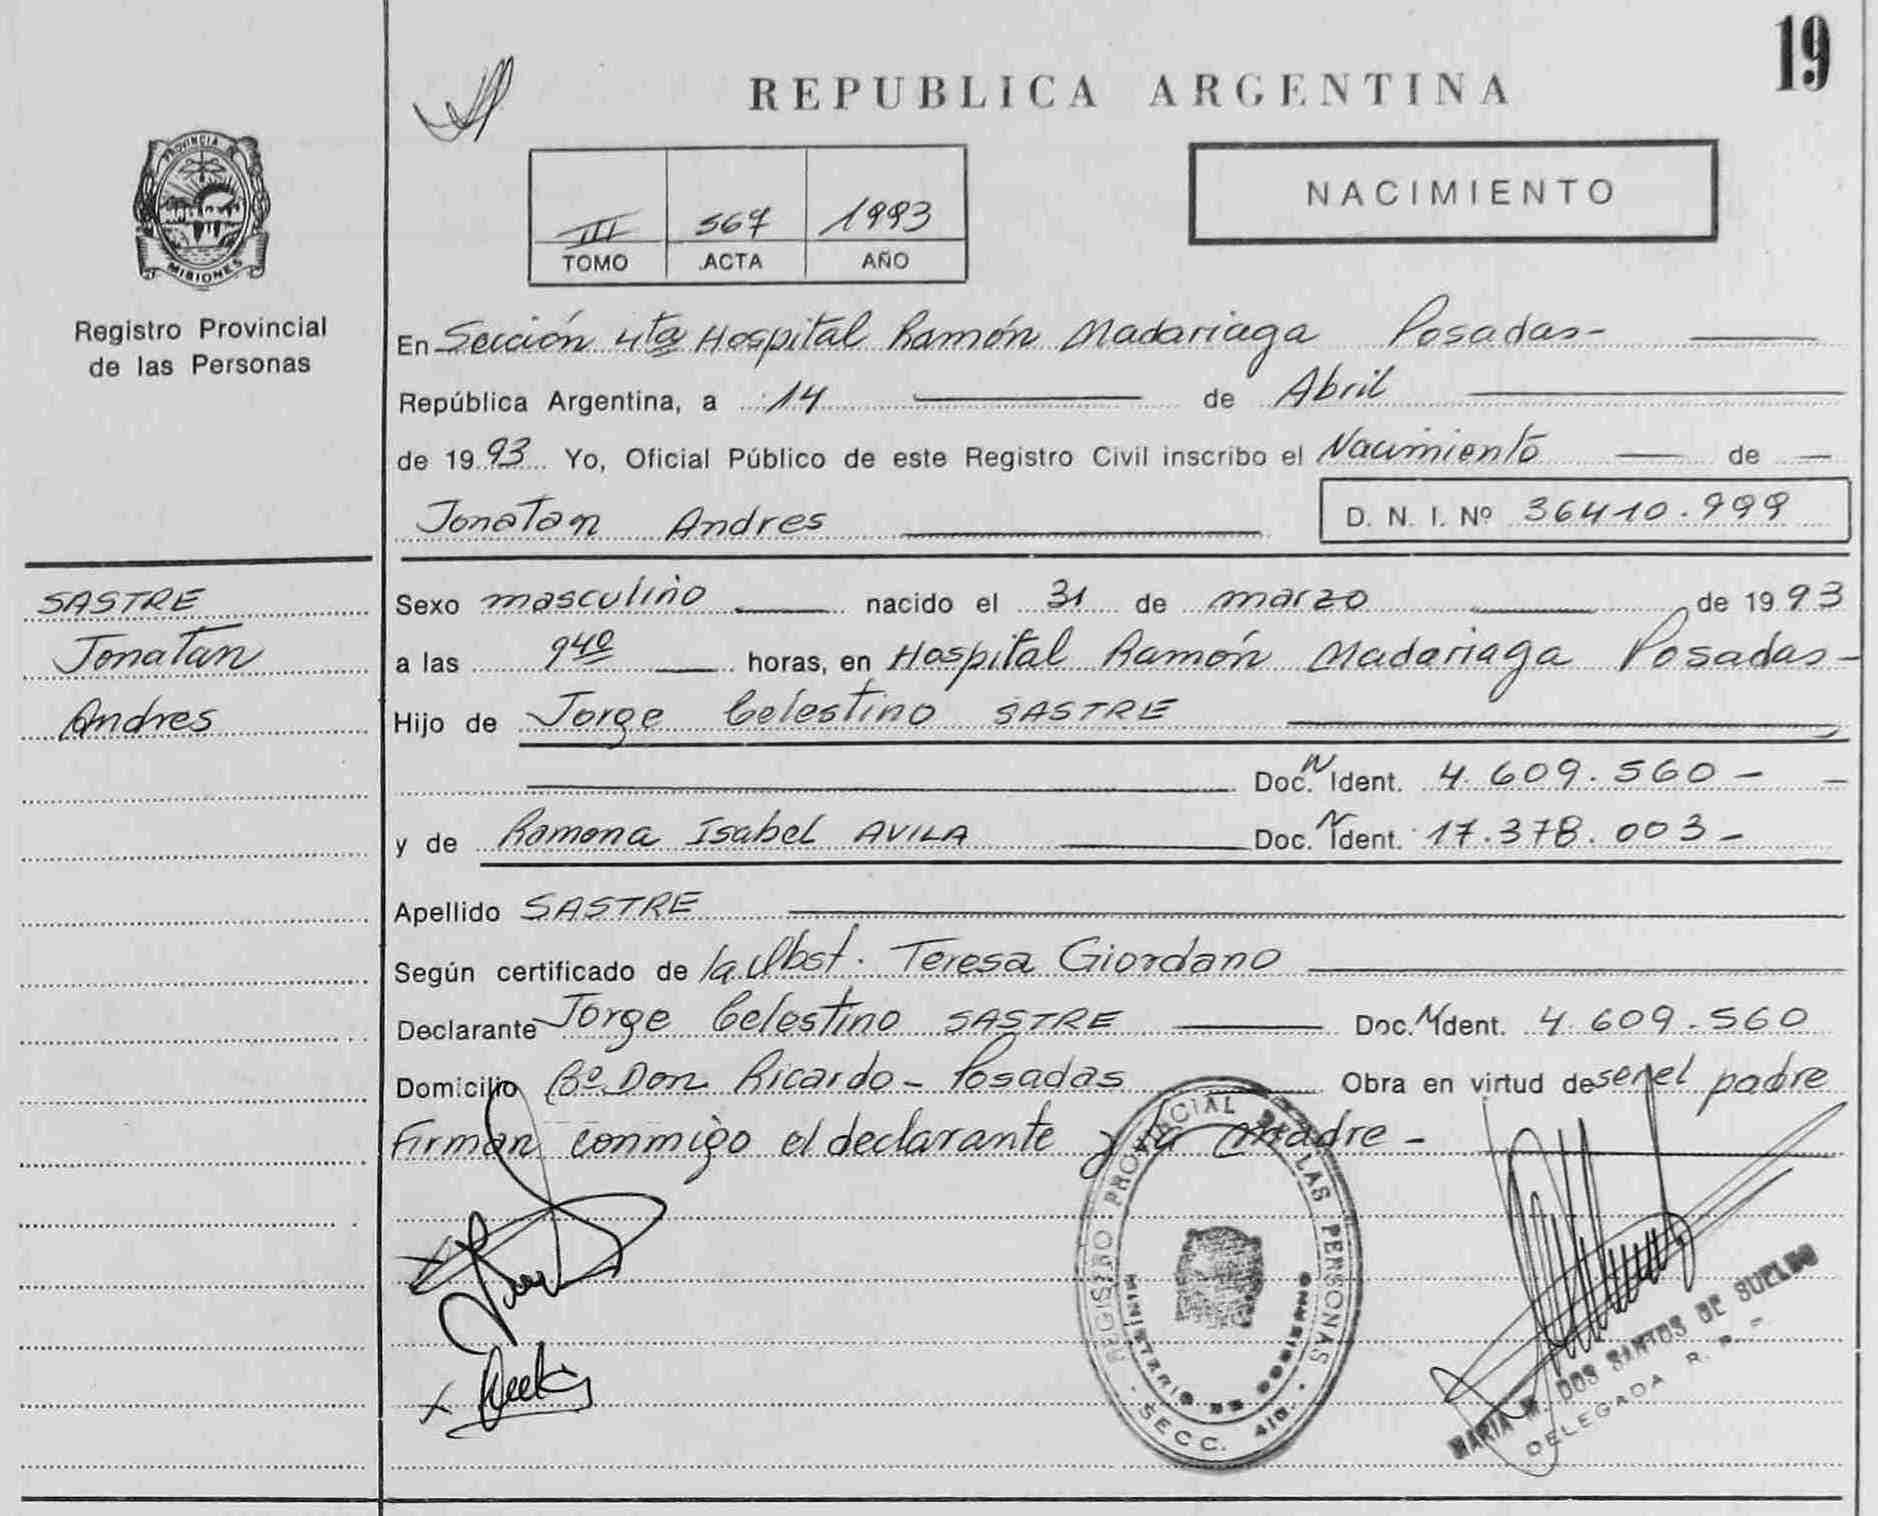 19
REPUBLICA ARGENTINA
PROVINCIA DE
MISIONES
Registro Provincial
de las Personas
III 567 1993
TOMO ACTA AÑO
NACIMIENTO
En Sección 4ta Hospital Ramón Madariaga Posadas-
República Argentina, a 14 de Abril
de 1993 Yo, Oficial Público de este Registro Civil inscribo el Nacimiento de
Jonatan Andres D. N. I. Nº 36410.999
SASTRE
Jonatan
Andres
Sexo masculino nacido el 31 de marzo de 1993
a las 940 horas, en Hospital Ramón Madariaga Posadas-
Hijo de Jorge Celestino SASTRE
Doc. N Ident. 4.609.560-
y de Ramona Isabel AVILA Doc. N Ident. 17.378.003-
Apellido SASTRE
Según certificado de la Obst. Teresa Giordano
Declarante Jorge Celestino SASTRE Doc. N Ident. 4.609.560
Domicilio Bº Don Ricardo - Posadas Obra en virtud de ser el padre
Firman conmigo el declarante y la madre -
REGISTRO PROVINCIAL DE LAS PERSONAS
MINISTERIO DE GOBIERNO
SECC. 4ta.
MARIA M. DOS SANTOS DE SUELDO
DELEGADA R. P. P.